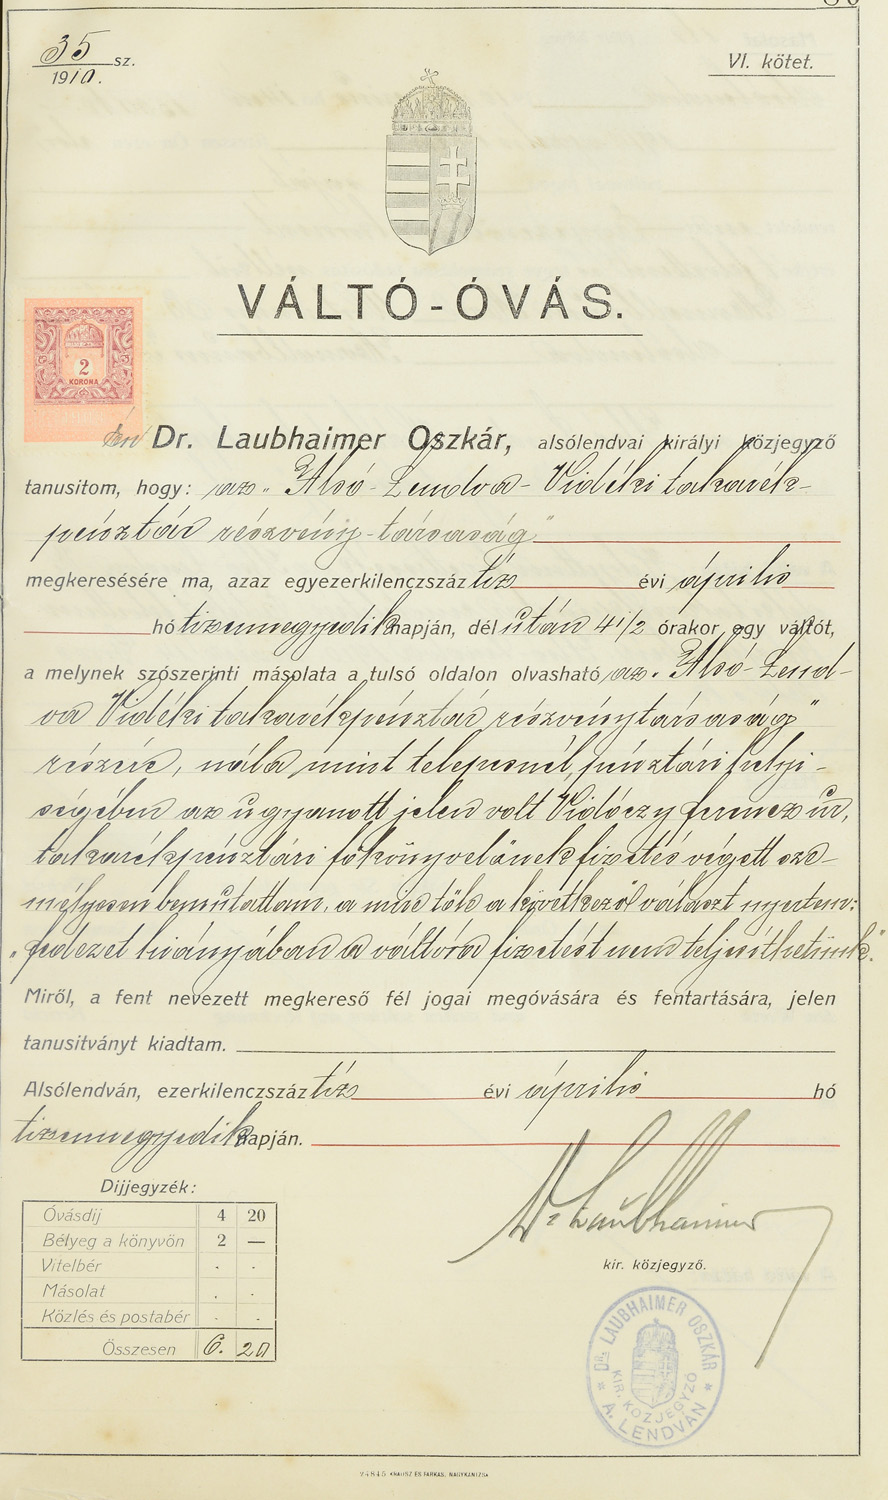 35 sz.
1910.
VI. kötet.
VÁLTÓ-ÓVÁS.
2
KORONA
Én Dr. Laubhaimer Oszkár, alsólendvai királyi közjegyző
tanusitom, hogy: az „Alsó-Lendva-Vidéki takarék-
pénztár részvény-társaság"
megkeresésére ma, azaz egyezerkilenczszáz tíz évi április
hó tizennegyedik napján, dél után 4 1/2 órakor egy váltót,
a melynek szószerinti másolata a tulsó oldalon olvasható az „Alsó-Lend-
va Vidéki takarékpénztár részvénytársaság"
részére, nála mint telepesnél, pénztári helyi-
ségében az ugyanott jelen volt Vidóczy Ferencz úr,
takarékpénztári főkönyvelőnek fizetés végett sze-
mélyesen bemutattam, a mire tőle a következő választ nyertem:
„fedezet hiányában a váltóra fizetést nem teljesíthetünk."
Miről, a fent nevezett megkereső fél jogai megóvására és fentartására, jelen
tanusitványt kiadtam.
Alsólendván, ezerkilenczszáz tíz évi április hó
tizennegyedik napján.
Dijjegyzék:
Óvásdij 4 20
Bélyeg a könyvön 2 —
Vitelbér . .
Másolat . .
Közlés és postabér . .
Összesen 6. 20
Dr Laubhaimer
kir. közjegyző.
DR. LAUBHAIMER OSZKÁR
KIR. KÖZJEGYZŐ
A. LENDVÁN
24845 KNAUSZ ÉS FARKAS, NAGYKANIZSA